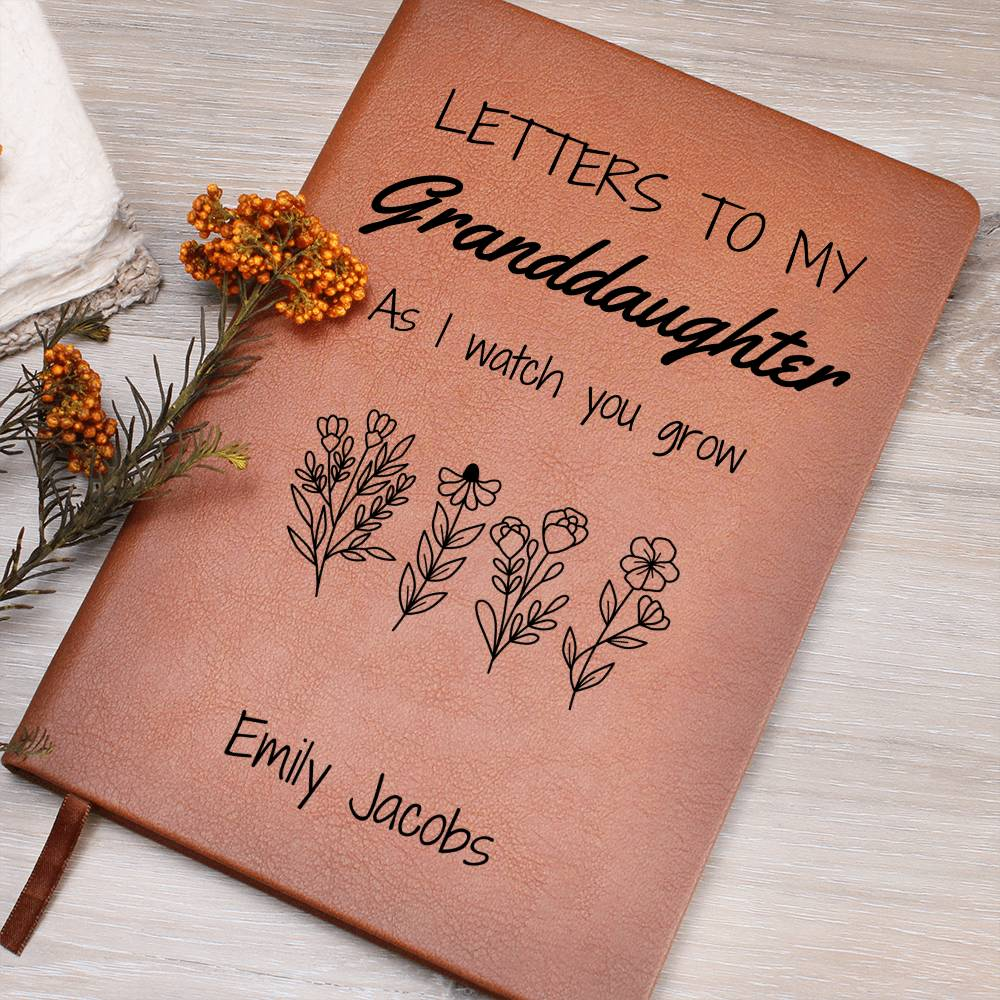 LETTERS TO MY
Granddaughter
As I watch you grow
Emily Jacobs